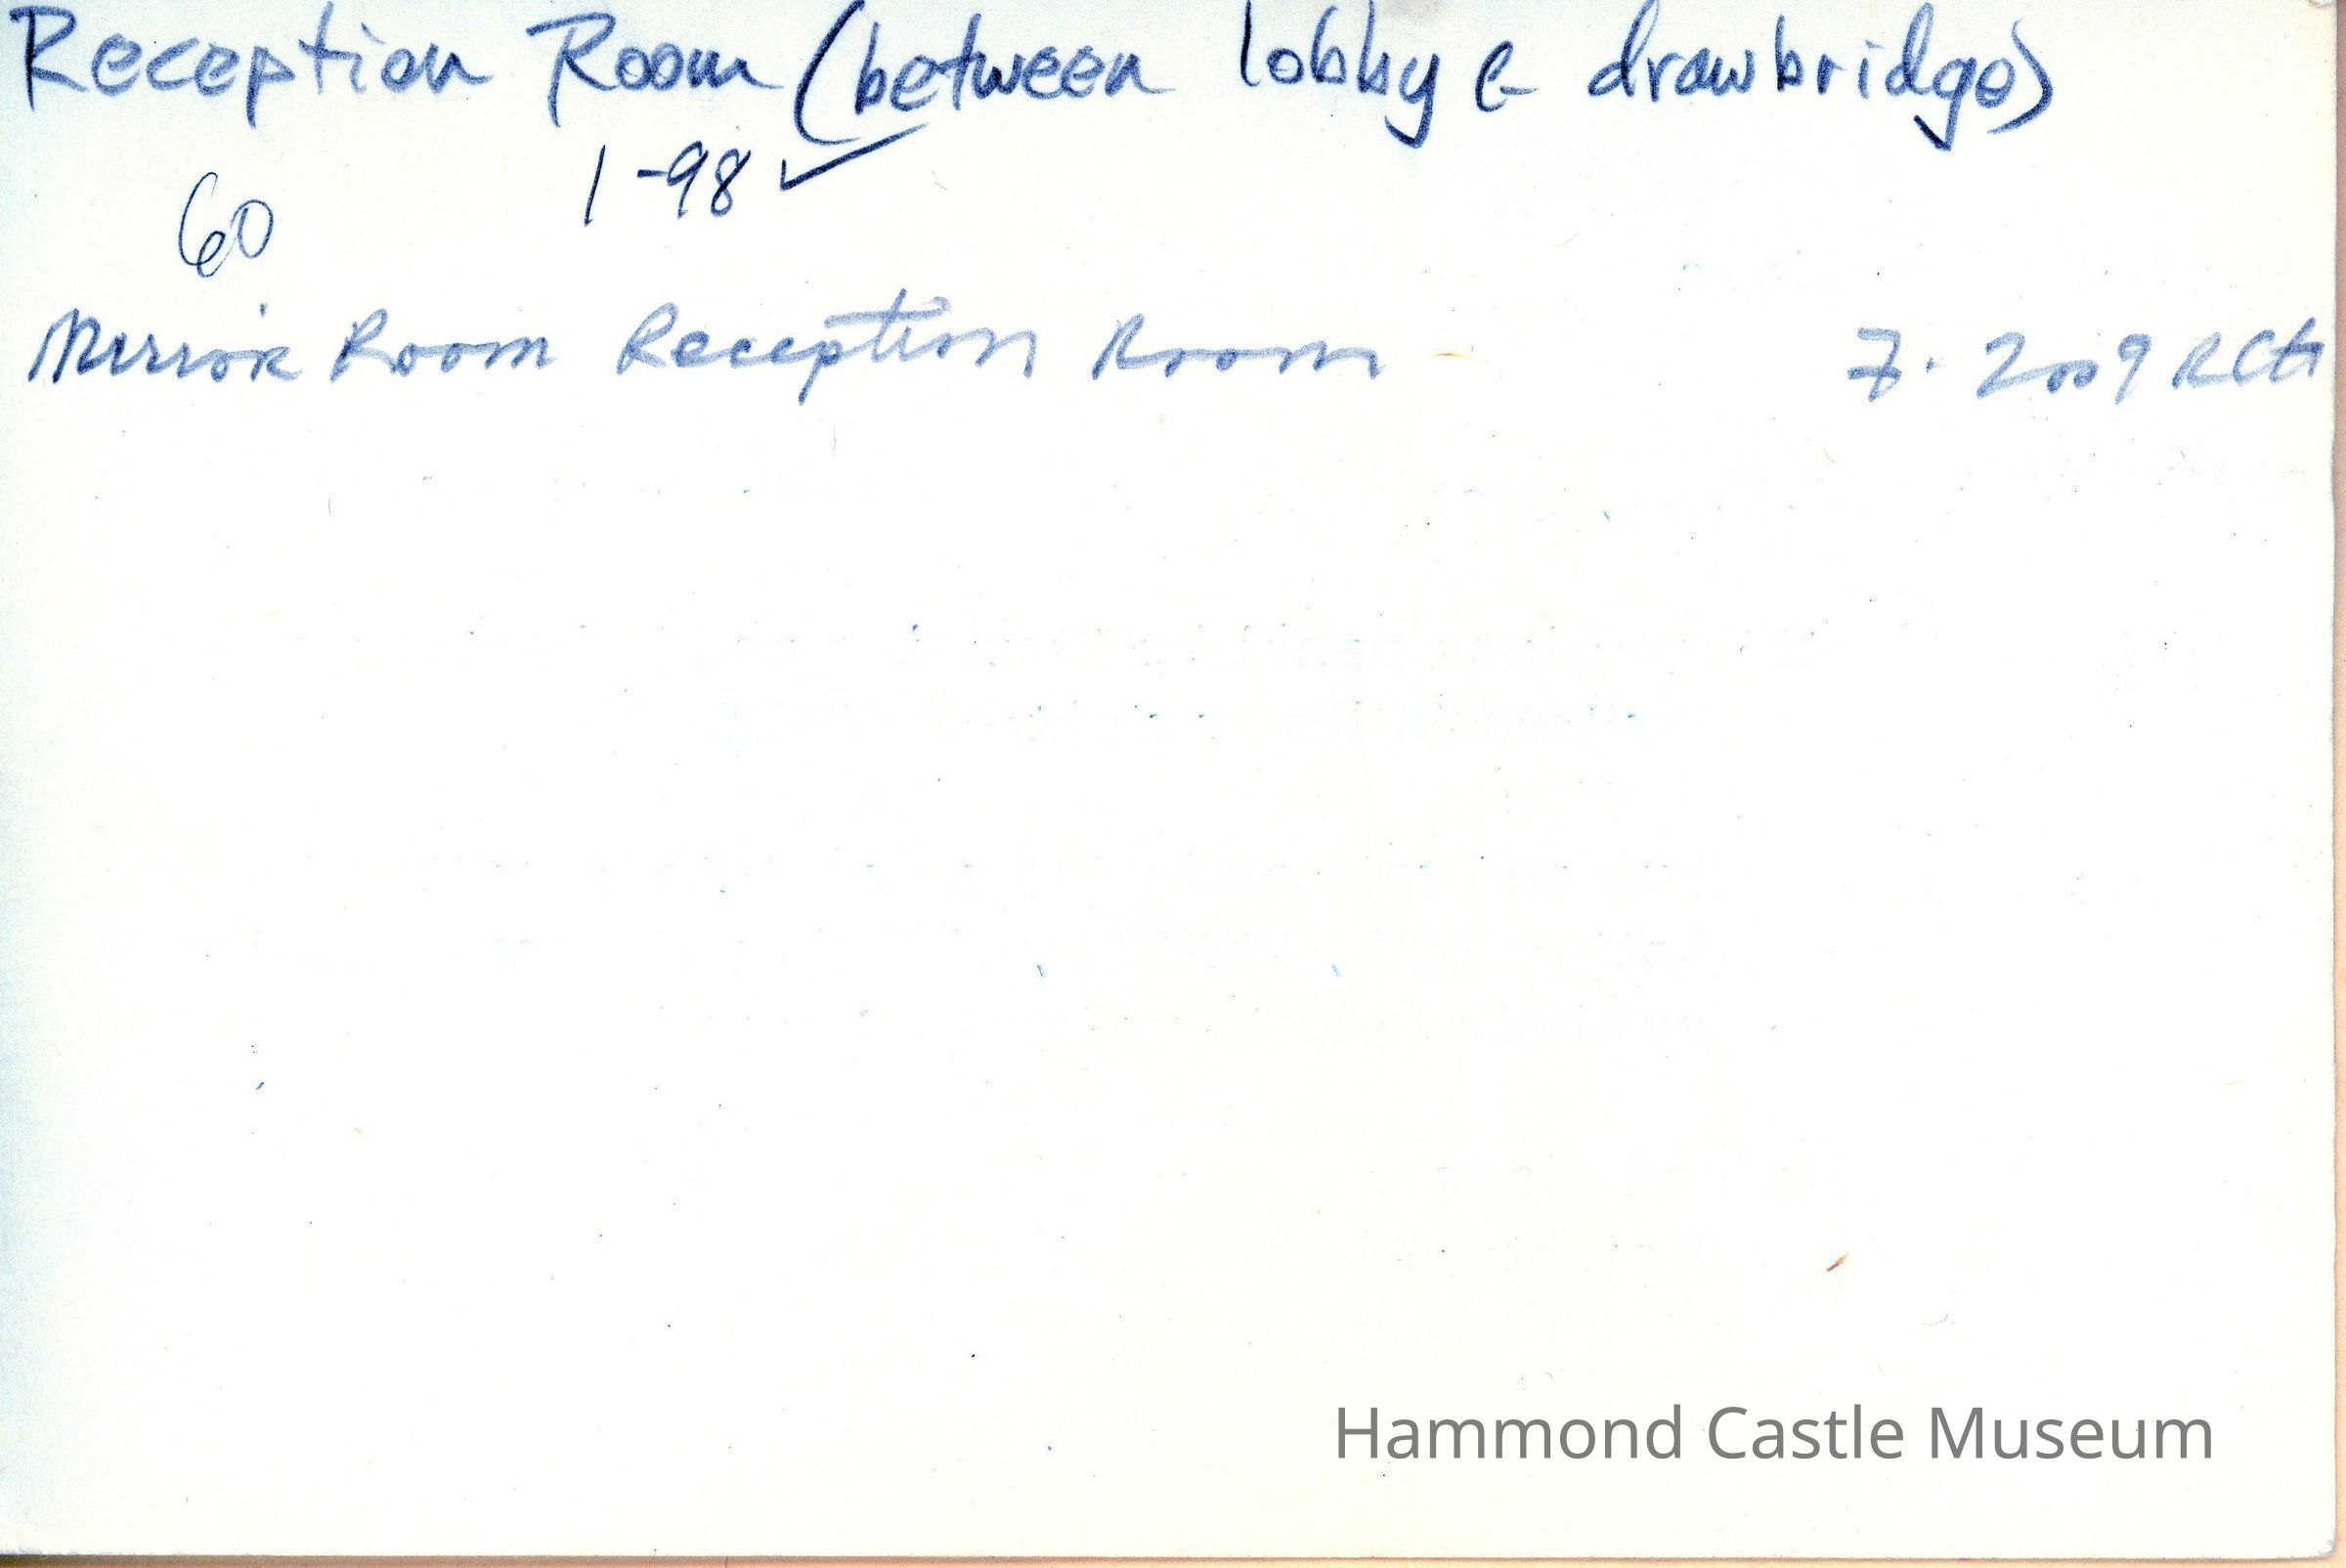 Reception Room (between lobby & drawbridge)
1-98 ✓
60
Mirror Room Reception Room - 7. 2009 RCH
Hammond Castle Museum